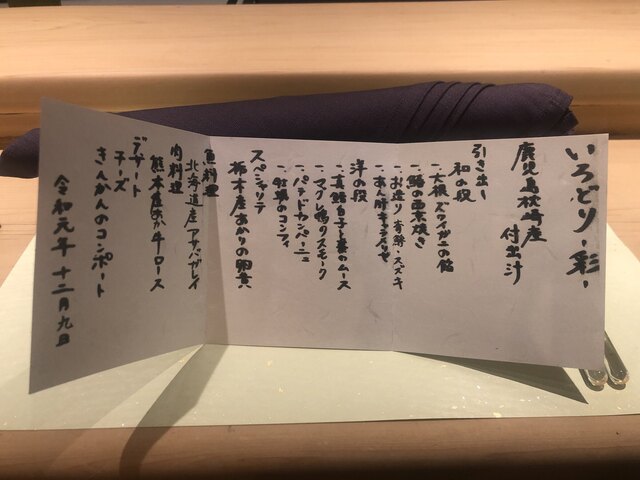 いろどり-彩-
鹿児島枕崎産
付出汁
引き出し
和の段
一.大根 ズワイガニの餡
一.鰆の西京焼き
一.お造り 鰤・スズキ
一.あん肝
洋の段
一.真鱈白子と蕪のムース
一.マグレ鴨のスモーク
一.パテドカンパーニュ
一.牡蠣のコンフィ
スペシャリテ
栃木産あかりの卵黄
魚料理
北海道産アサバガレイ
肉料理
熊本産あか牛ロース
デザート
チーズ
きんかんのコンポート
令和元年十二月九日